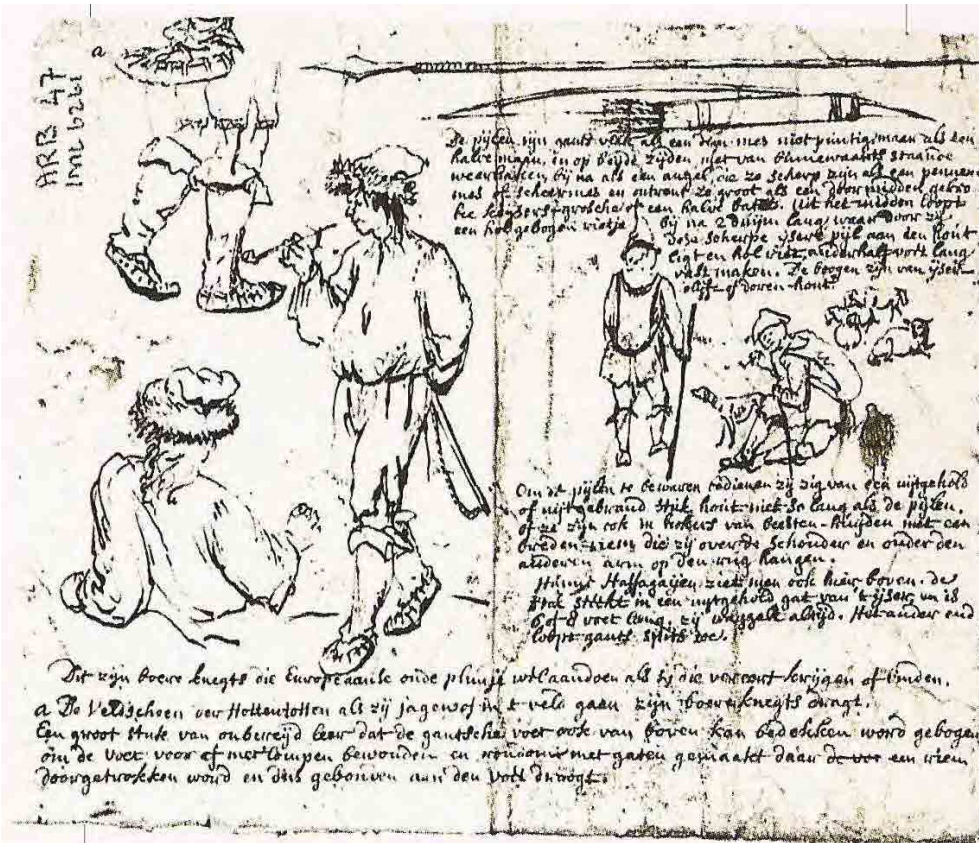 a
ARB 47
De pijlen zijn gants vlak als een dun mes niet puntig, maar als een
halve maan, en op beyde zijden met van binnewaarts staande
weerhaken bij na als een angel, die zo scherp zijn als een pennen
mes of scheermes en ontrent zo groot als een door midden gebro
ke keysers-grosche of een halve Uit het midden loopt
een hol gebogen rietje, bij na 2 duijm lang waar door zij
deze scherpe ijsere pijl aan den hout
ligt en hol riet, anderhalf voet lang
vast maken. De boogen zijn van ijser
olijf of doren-hout.
Om de pijlen te bewaren bedienen zij zig van een uijtgehold
of uijtgebrand stuk hout niet so lang als de pijlen,
of ze zijn ook in kokers van beesten-huijden met een
breden riem die zij over de schouder en onder den
anderen arm op den rug hangen.
Hunne Hassagaijen ziet men ook hier boven. de
stok steekt in een uijtgehold gat van 't ijser, en is
6 of 8 voet lang, zij altijd. Het ander end
loopt gants spits toe.
Dit zijn boere knegts die Europeaanse oude plunje wel aandoen als zij die vereert krijgen of vinden.
a De Veldschoen der Hottentotten als zij jagen of in 't veld gaen zijn boereknegts dragt.
Een groot stuk van onbereijd leer dat de gantsche voet ook van boven kan bedekken word gebogen
om de voet voor of met lompen bewonden en rontom met gaten gemaakt daar de voe een riem
doorgetrokken word en dus gebonden aan den voet droogt.